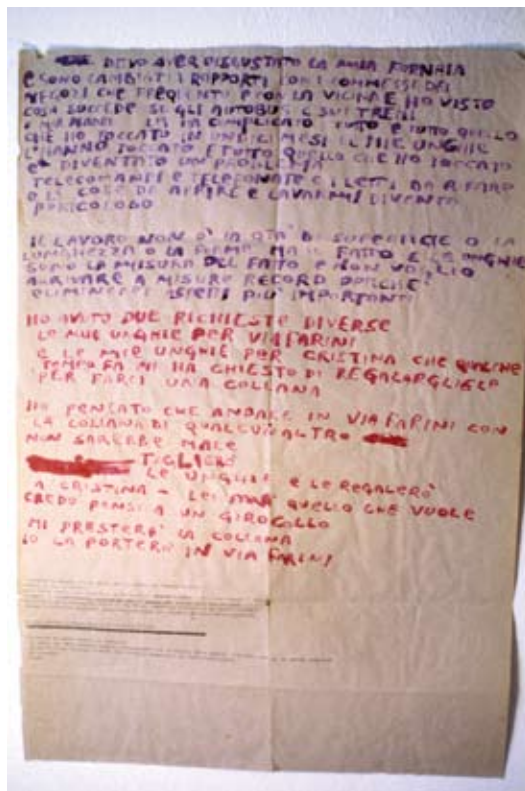 DEVO AVER DISGUSTATO LA MIA FORNAIA
E SONO CAMBIATI I RAPPORTI CON I COMMESSI DEI
NEGOZI CHE FREQUENTO E CON LA VICINA E HO VISTO
COSA SUCCEDE SUGLI AUTOBUS E SUI TRENI
LA HA COMPLICATO TUTTO E TUTTO QUELLO
CHE HO TOCCATO IN UNDICI MESI LE MIE UNGHIE
L'HANNO TOCCATO E TUTTO QUELLO CHE HO TOCCATO
E' DIVENTATO UN PROBLEMA
TELECOMANDI E TELEFONATE E I LETTI DA RIFARE
E LE COSE DA APRIRE E LAVARMI DIVENTA
PERICOLOSO
IL LAVORO NON E' LA QTA' DI SUPERFICIE O LA
LUNGHEZZA O LA FORMA MA IL FATTO E LE UNGHIE
SONO LA MISURA DEL FATTO E NON VOGLIO
ARRIVARE A MISURE RECORD PERCHE'
ELIMINEREI ASPETTI PIU' IMPORTANTI
HO AVUTO DUE RICHIESTE DIVERSE
LE MIE UNGHIE PER VIAFARINI
E LE MIE UNGHIE PER CRISTINA CHE QUALCHE
TEMPO FA MI HA CHIESTO DI REGALARGLIELE
PER FARCI UNA COLLANA
HO PENSATO CHE ANDARE IN VIA FARINI CON
LA COLLANA DI QUALCUN ALTRO
NON SAREBBE MALE
TAGLIERO'
LE UNGHIE E LE REGALERO'
A CRISTINA - LEI FARA' QUELLO CHE VUOLE
CREDO PENSI A UN GIROCOLLO
MI PRESTERA' LA COLLANA
IO LA PORTERO IN VIA FARINI